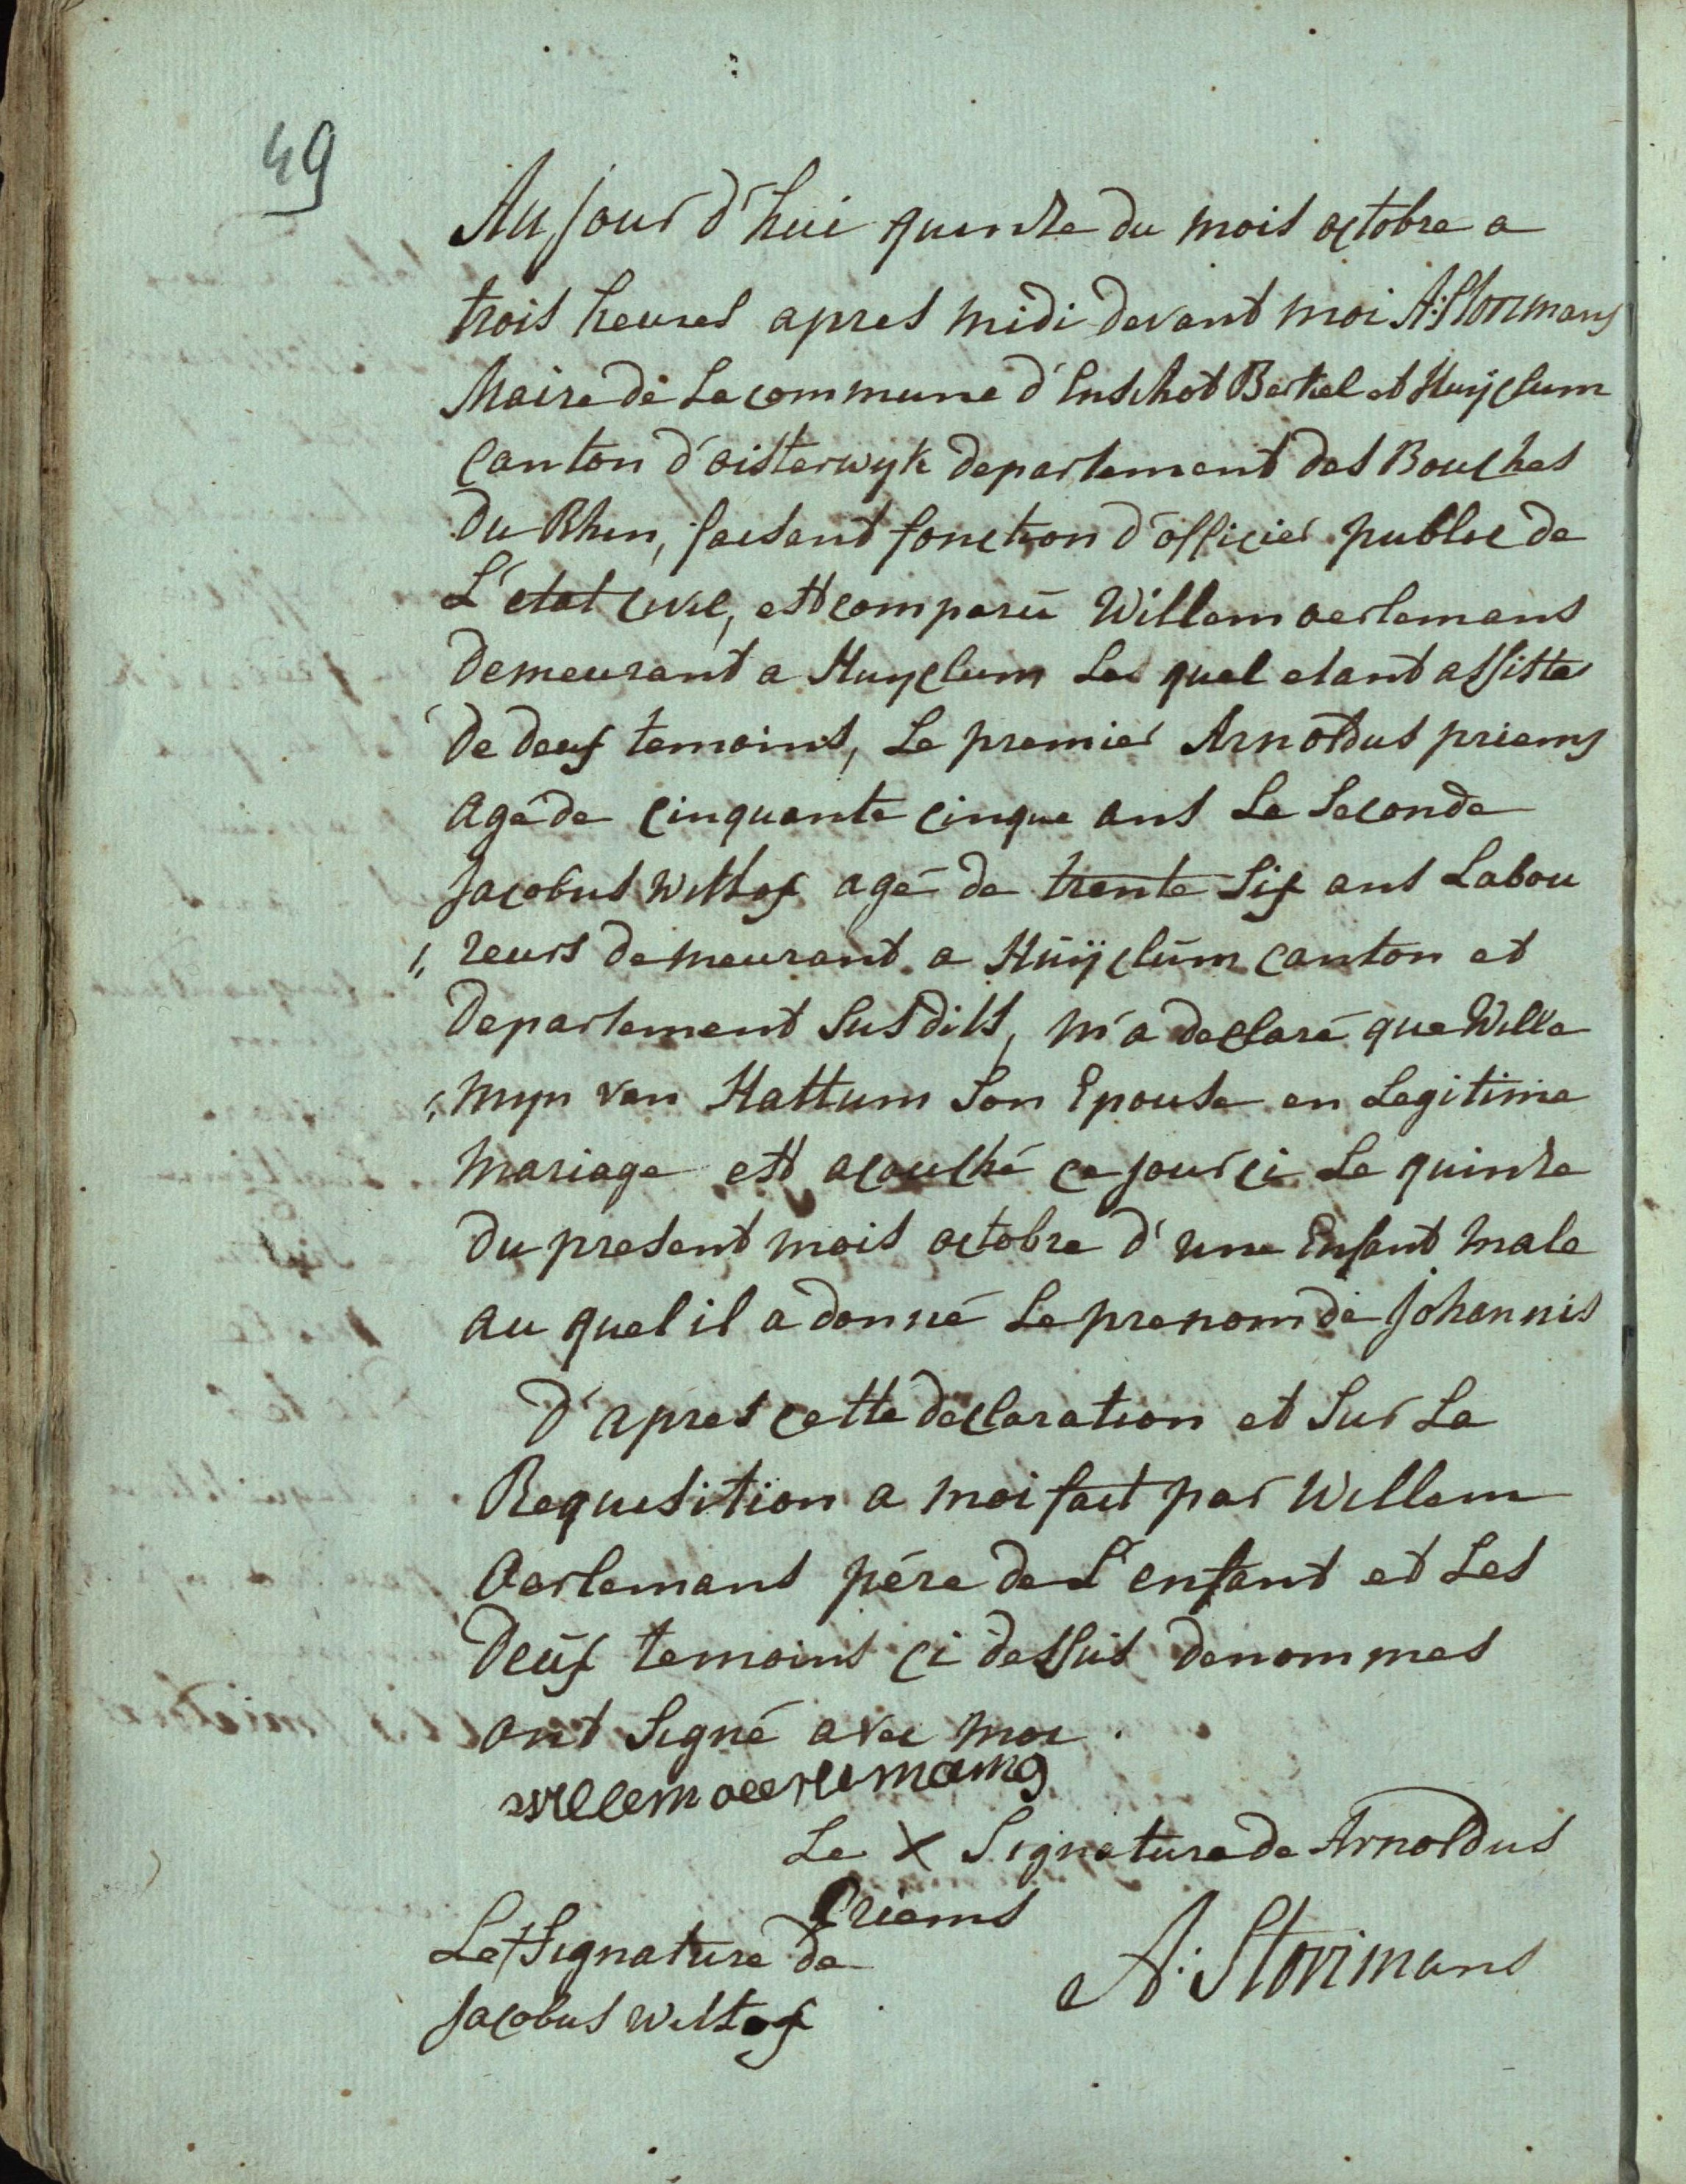 49
Aujourd'hui quinze du mois octobre a
trois heures apres midi devant moi A: Stormans
Maire de La commune d'Enschot Berkel et Huijclum
Canton d'oisterwyk departement des Bouches
du Rhin, faisant fonction d'officier public de
L'etat civil, est comparu Willem oerlemans
demeurant a Huyclum Le quel etant assiste
de deux temoins, Le premier Arnoldus priems
agé de cinquante cinque ans Le Seconde
Jacobus Wittox agé de trente Six ans Labou
„ reurs demeurant a Huijclum canton et
departement Susdits, m'a declaré que Wille
„ myn van Hattum Son Epouse en Legitime
mariage est acouché ce jour ci Le quinze
du present mois octobre d'une Enfant male
au quel il a donné Le prenom de Johannis
D'apres cette declaration et Sur La
Requisition a moi fait par Willem
Oerlemans pére de L'enfant et Les
deux temoins ci dessus denommes
ont Signé avec moi.
willem oeerlemans
Le X Signature de Arnoldus
Priems
Le + Signature de
Jacobus Wittox
A: Stormans